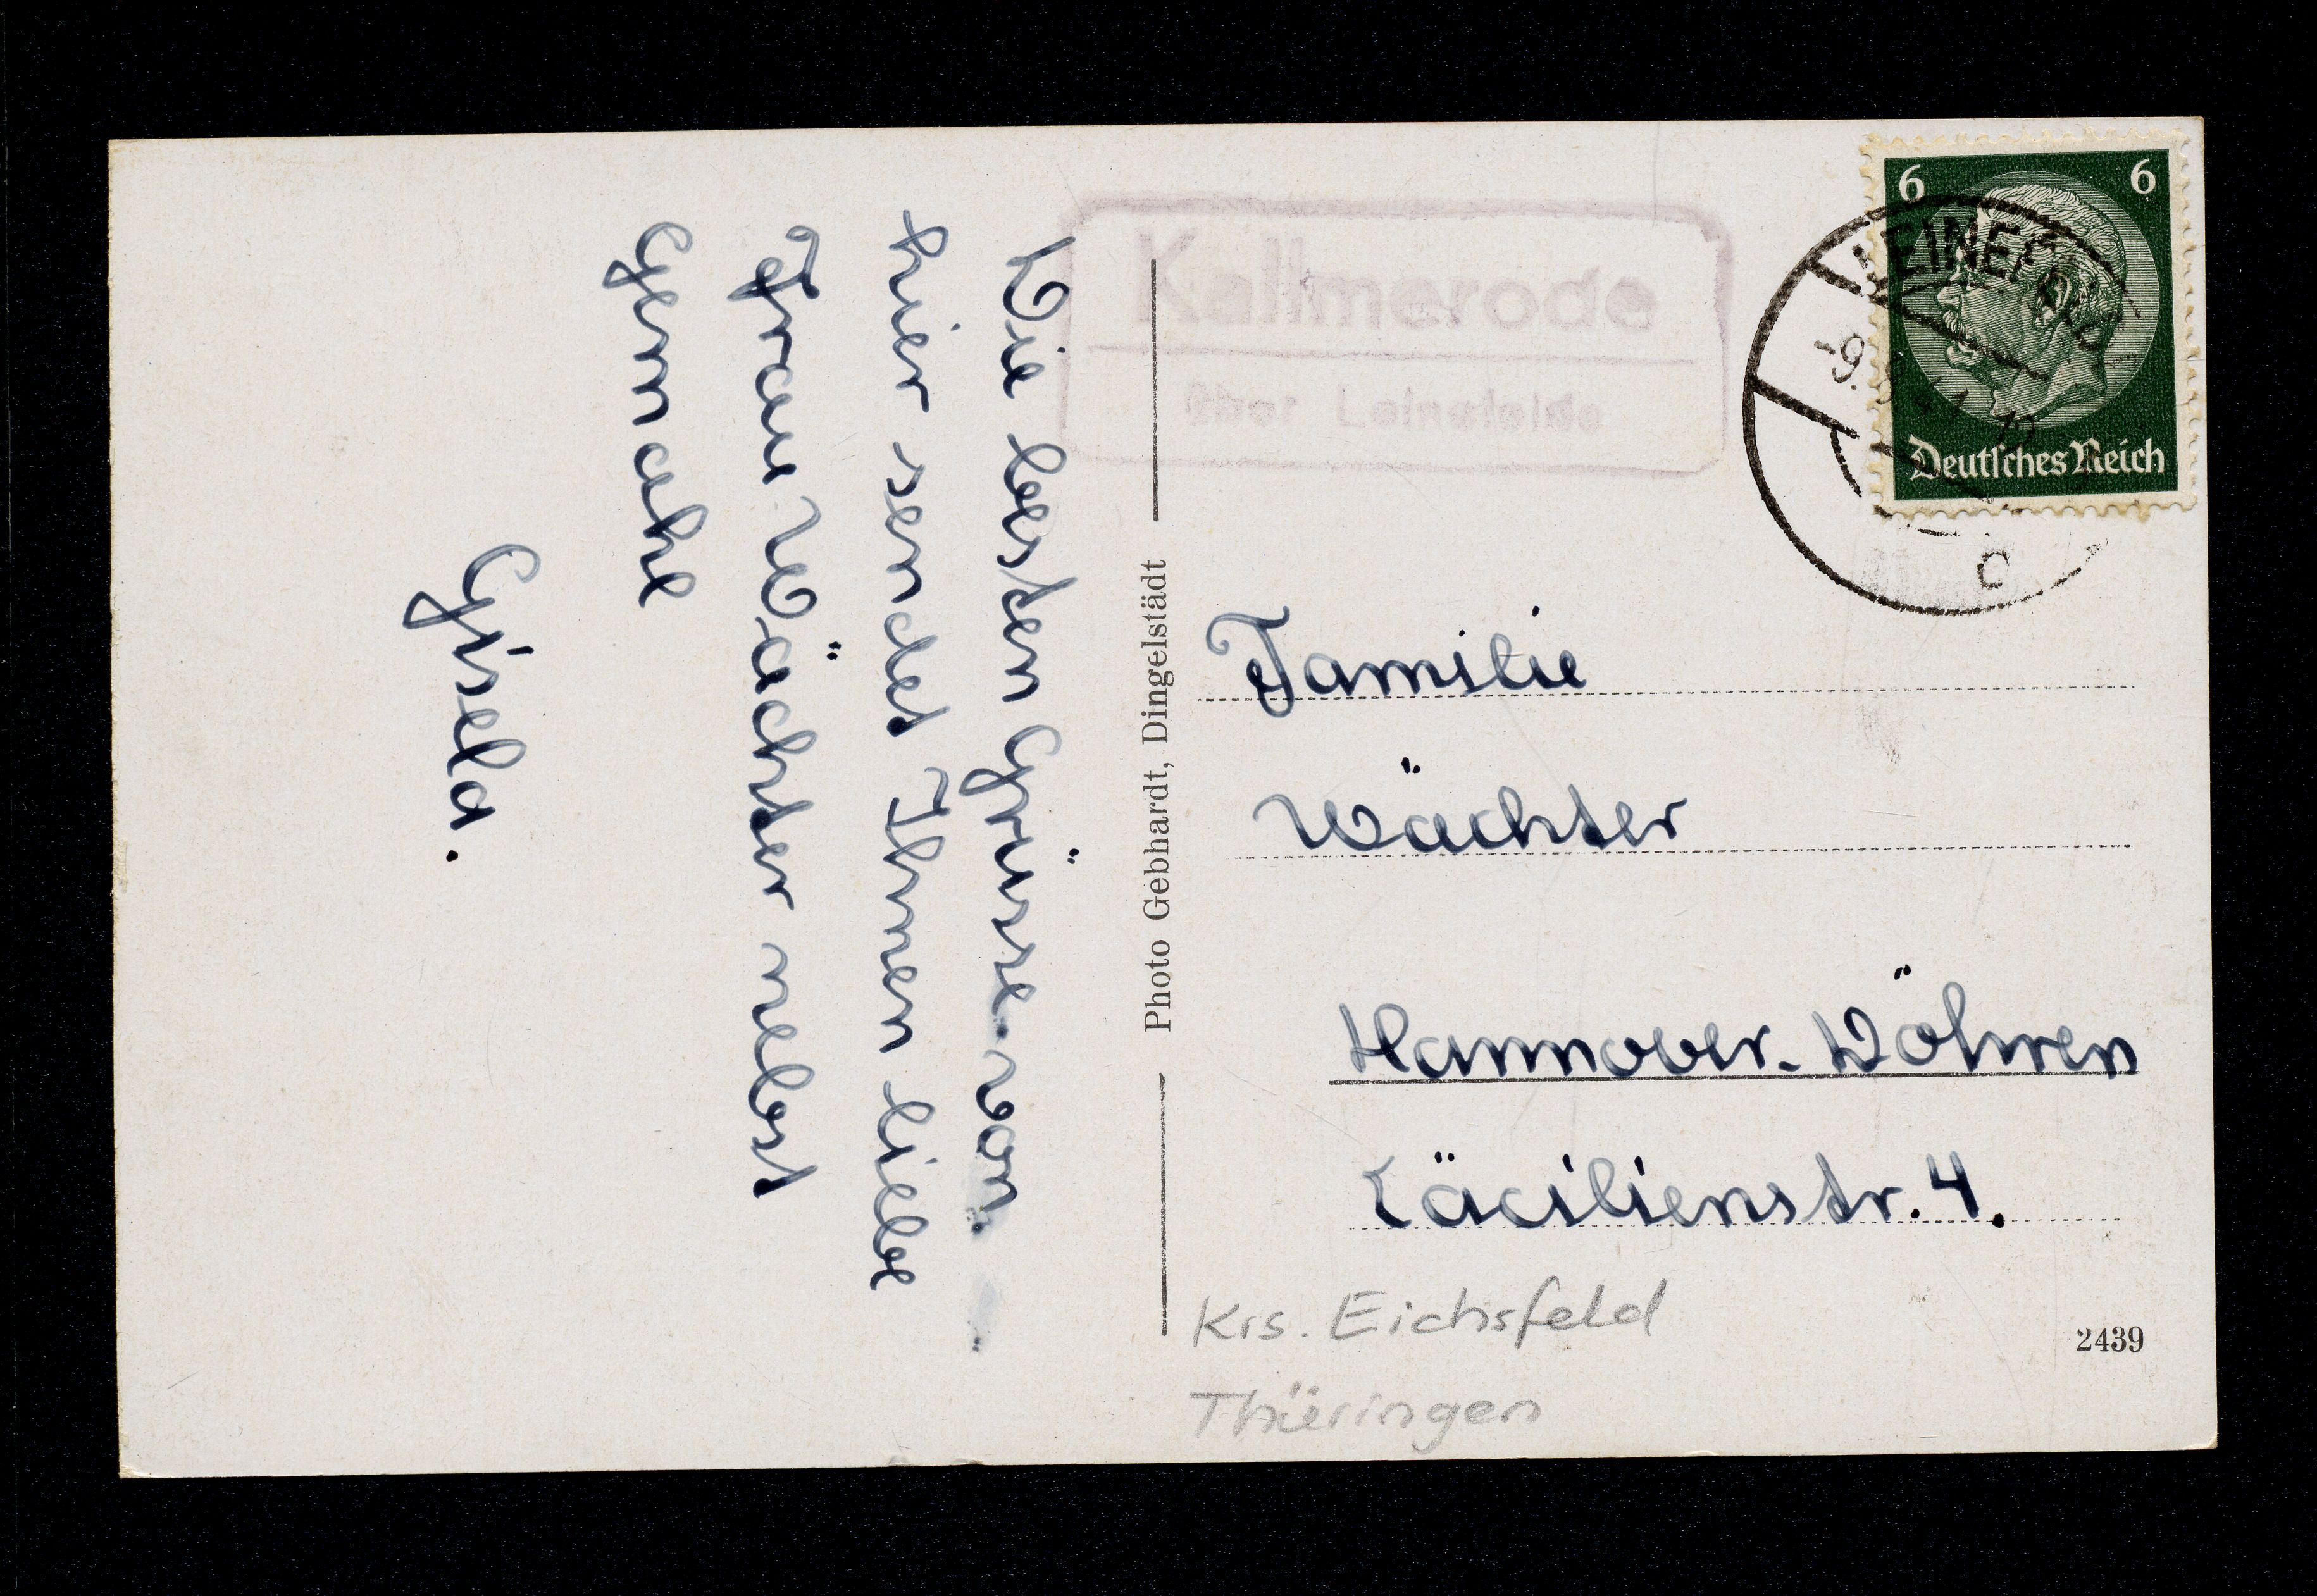 Die besten Grüsse von
hier sendet Ihnen liebe
Frau Wächter nebst
Gemahl
Gisela.
Photo Gebhardt, Dingelstädt
Kallmerode
über Leinefelde
6 6
Deutsches Reich
LEINEFELDE
c
Familie
Wächter
Hannover-Döhren
Cäcilienstr. 4.
Krs. Eichsfeld
Thüringen
2439